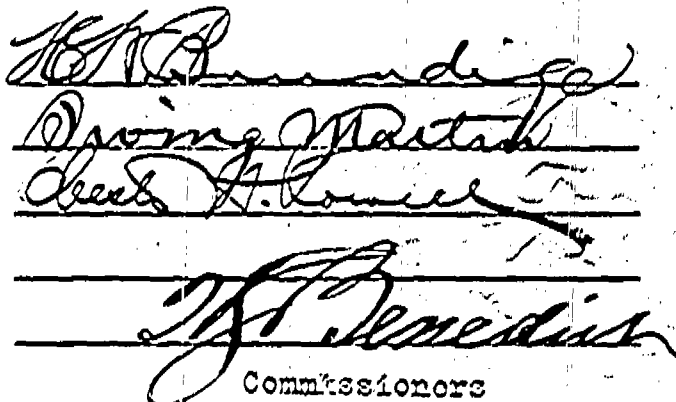 H W Brundige
Irving Martin
H. Rowell
Benedict
Commissioners